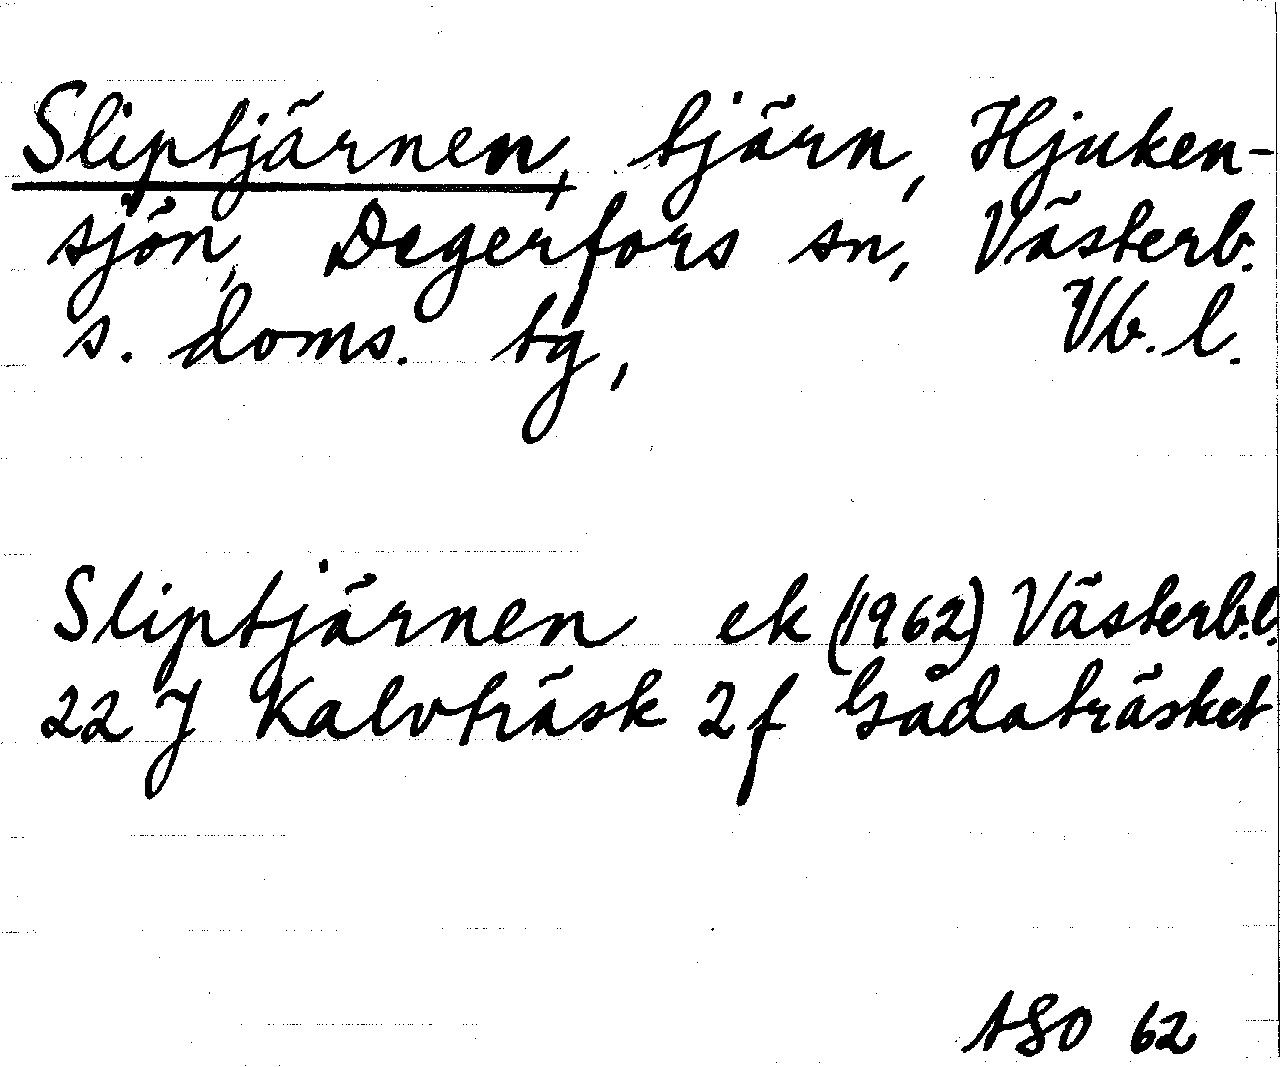 Sliptjärnen, tjärn, Hjuken-
sjön, Degerfors sn, Västerb.
s. doms. tg, Vb. l.
Sliptjärnen ek (1962) Västerb.l.
22 J Kalvträsk 2 f Gådaträsket
ASO 62